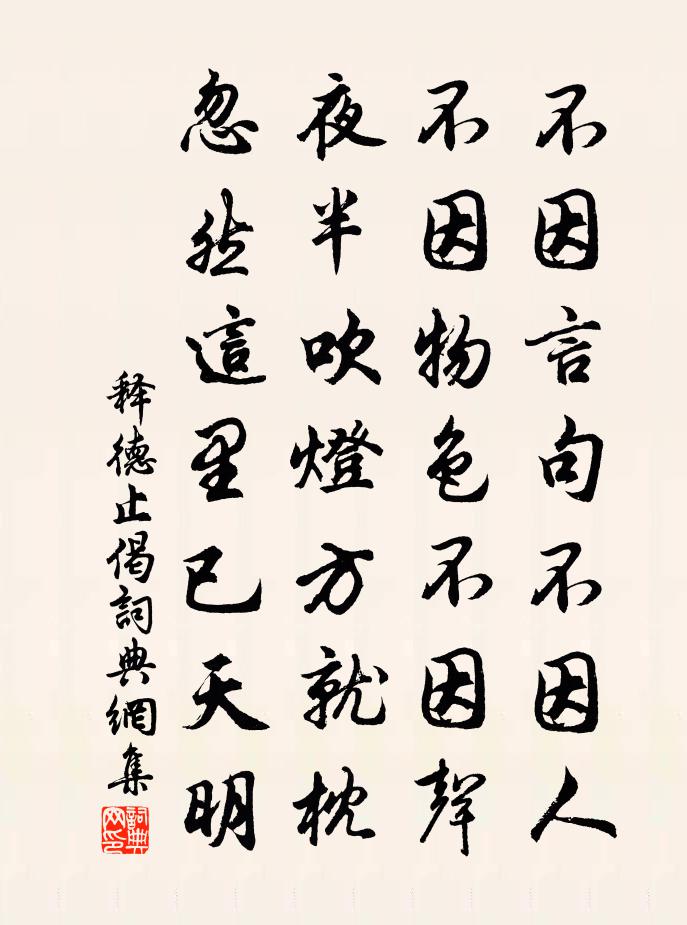 不因言句不因人
不因物色不因聲
夜半吹燈方就枕
忽然這里已天明
释德止偈詞典網集
詞典网印